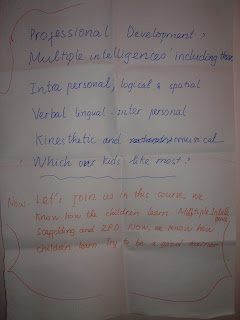 Professional Development:
Multiple intelligences' including then
Intra personal, logical & spatial
Verbal lingual - inter personal
Kinesthetic and musical
Which our kids like most?
Now. Let's join us in this course, we
know how the children learn Multiple Intelli
gence
scaffolding and ZPD. Now, we know how
children learn. Try to be a good trainer